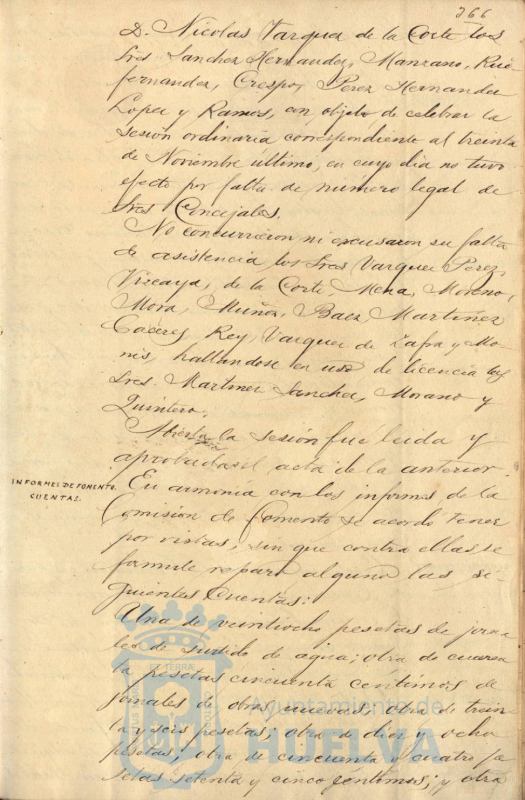 266
D. Nicolas Vazquez de la Corte los
Sres Sanchez Hernandez, Manzano, Ruiz
fernandez, Crespo, Perez Hernandez
Lopez y Ramos, con objeto de celebrar la
sesión ordinaria correspondiente al treinta
de Noviembre último, en cuyo dia no tuvo
efecto por falta de número legal de
Sres Concejales.
No concurrieron ni excusaron su falta
de asistencia los Sres Vazquez Perez,
Vizcaya, de la Corte Mena, Moreno,
Mora, Muñoz, Baez, Martinez
Caceres, Rey, Vazquez de Zafra y Mo-
nis, hallandose en uso de licencia los
Sres. Martinez Sanchez, Morano y
Quintero.
Abierta la sesión fué leida y
aprobada el acta de la anterior.
INFORMES DE FOMENTO.
CUENTAS.
En armonia con los informes de la
Comision de fomento se acordo tener
por vistas, sin que contra ellas se
formule reparo alguno las si-
guientes cuentas:
Una de veintiocho pesetas de jorna-
les de surtido de agua; otra de cuaren
ta pesetas cincuenta centimos de
jornales de obras nuevas; otra de trein-
ta y seis pesetas; otra de diez y ocho
pesetas; otra de cincuenta y cuatro pe
setas setenta y cinco centimos; y otra
Ayuntamiento de
HUELVA